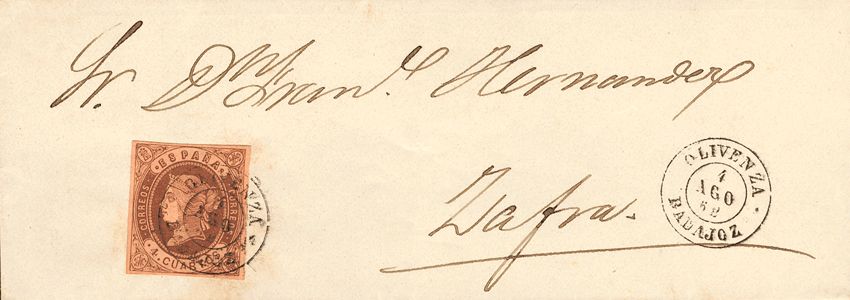 Sr. Dn Fran. Hernandez
Zafra.
ESPAÑA
CORREOS
CORREOS
4 CUARTOS
OLIVENZA
BADAJOZ
OLIVENZA
1
AGO
62
BADAJOZ